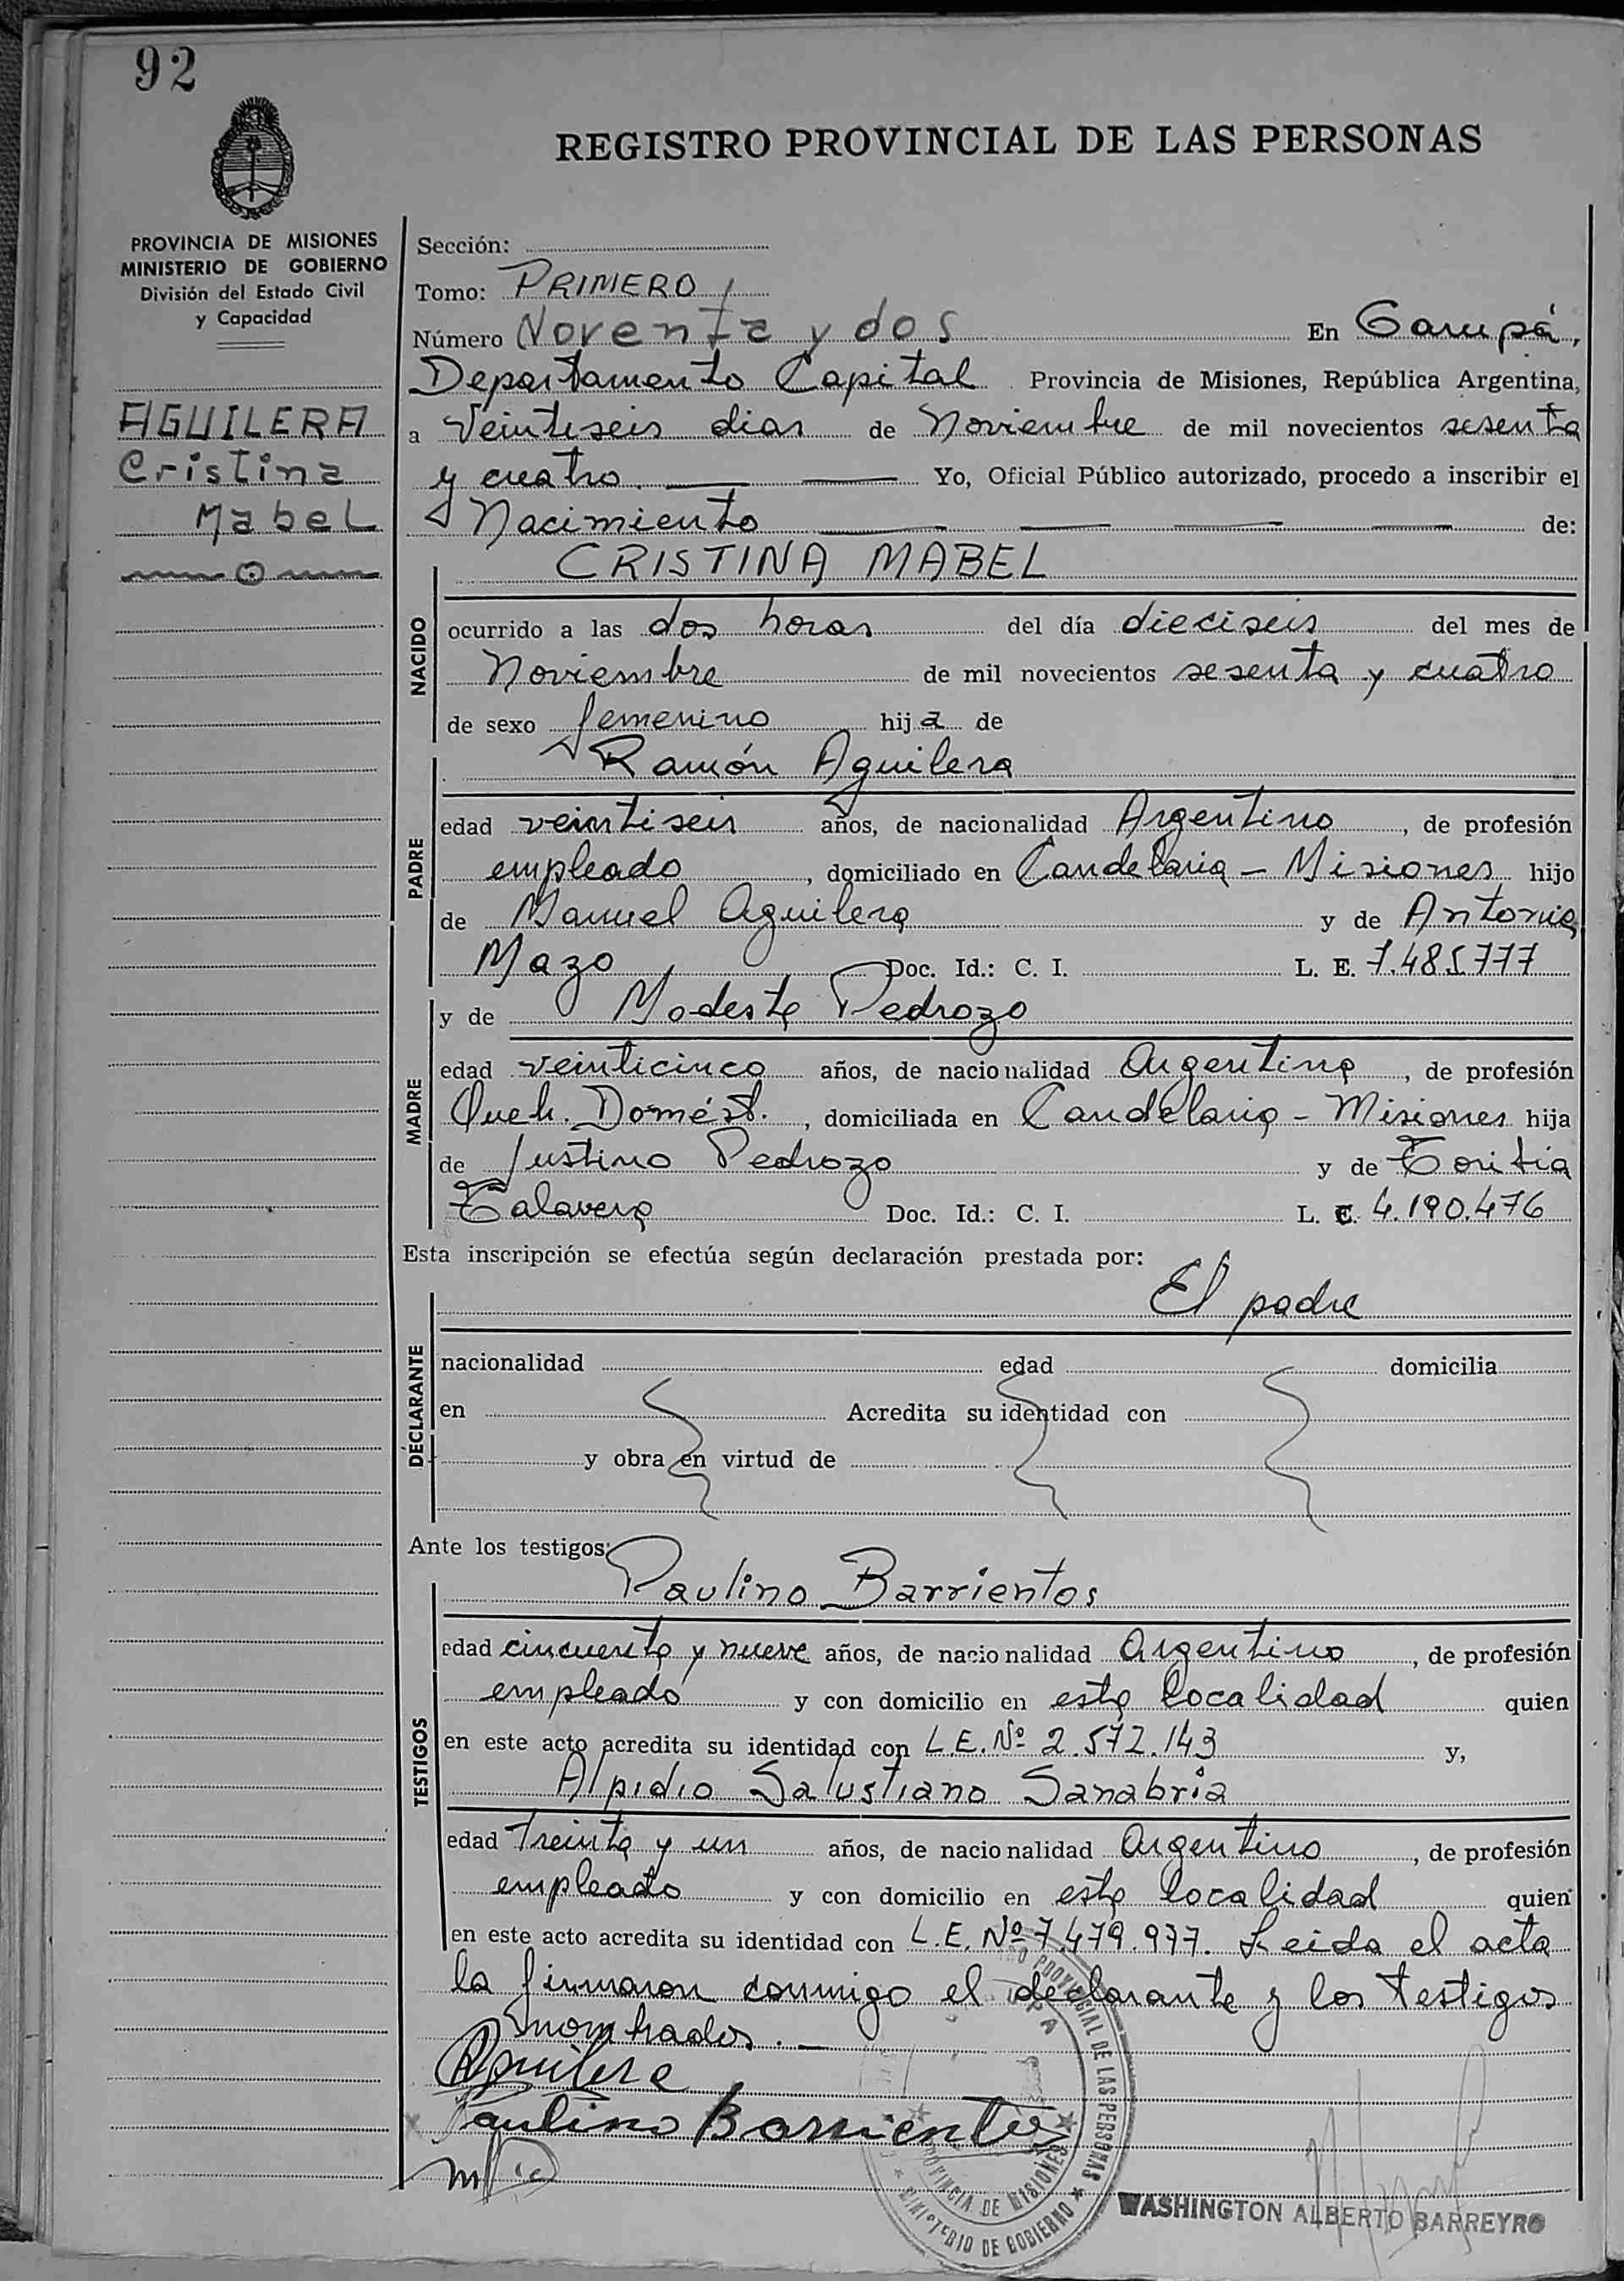 92
REGISTRO PROVINCIAL DE LAS PERSONAS
PROVINCIA DE MISIONES
MINISTERIO DE GOBIERNO
División del Estado Civil
y Capacidad
AGUILERA
Cristina
Mabel
Sección:
Tomo: PRIMERO
Número Noventa y dos En Garupá,
Departamento Capital Provincia de Misiones, República Argentina,
a Veintiseis dias de Noviembre de mil novecientos sesenta
y cuatro. Yo, Oficial Público autorizado, procedo a inscribir el
Nacimiento de:
NACIDO
CRISTINA MABEL
ocurrido a las dos horas del día dieciseis del mes de
Noviembre de mil novecientos sesenta y cuatro
de sexo femenino hija de
PADRE
Ramón Aguilera
edad veintiseis años, de nacionalidad Argentino, de profesión
empleado, domiciliado en Candelaria - Misiones hijo
de Manuel Aguilera y de Antonia
Mazo Doc. Id.: C. I. L. E. 7.485.777
MADRE
y de Modesta Pedrozo
edad veinticinco años, de nacionalidad Argentina, de profesión
Queh. Domést., domiciliada en Candelaria - Misiones hija
de Justino Pedrozo y de Toritia
Talavera Doc. Id.: C. I. L. C. 4.190.476
Esta inscripción se efectúa según declaración prestada por:
DECLARANTE
El padre
nacionalidad edad domicilia
en Acredita su identidad con
y obra en virtud de
Ante los testigos:
TESTIGOS
Paulino Barrientos
edad cincuenta y nueve años, de nacionalidad Argentino, de profesión
empleado y con domicilio en esta localidad quien
en este acto acredita su identidad con L.E. Nº 2.572.143 y,
Alpidio Salustiano Sanabria
edad treinta y un años, de nacionalidad Argentino, de profesión
empleado y con domicilio en esta localidad quien
en este acto acredita su identidad con L.E. Nº 7.479.977. Leida el acta
la firmaron conmigo el declarante y los testigos
nombrados.
Aguilera
Paulino Barrientos
PROVINCIAL DE LAS PERSONAS
PROVINCIA DE MISIONES
MINISTERIO DE GOBIERNO
WASHINGTON ALBERTO BARREYRO